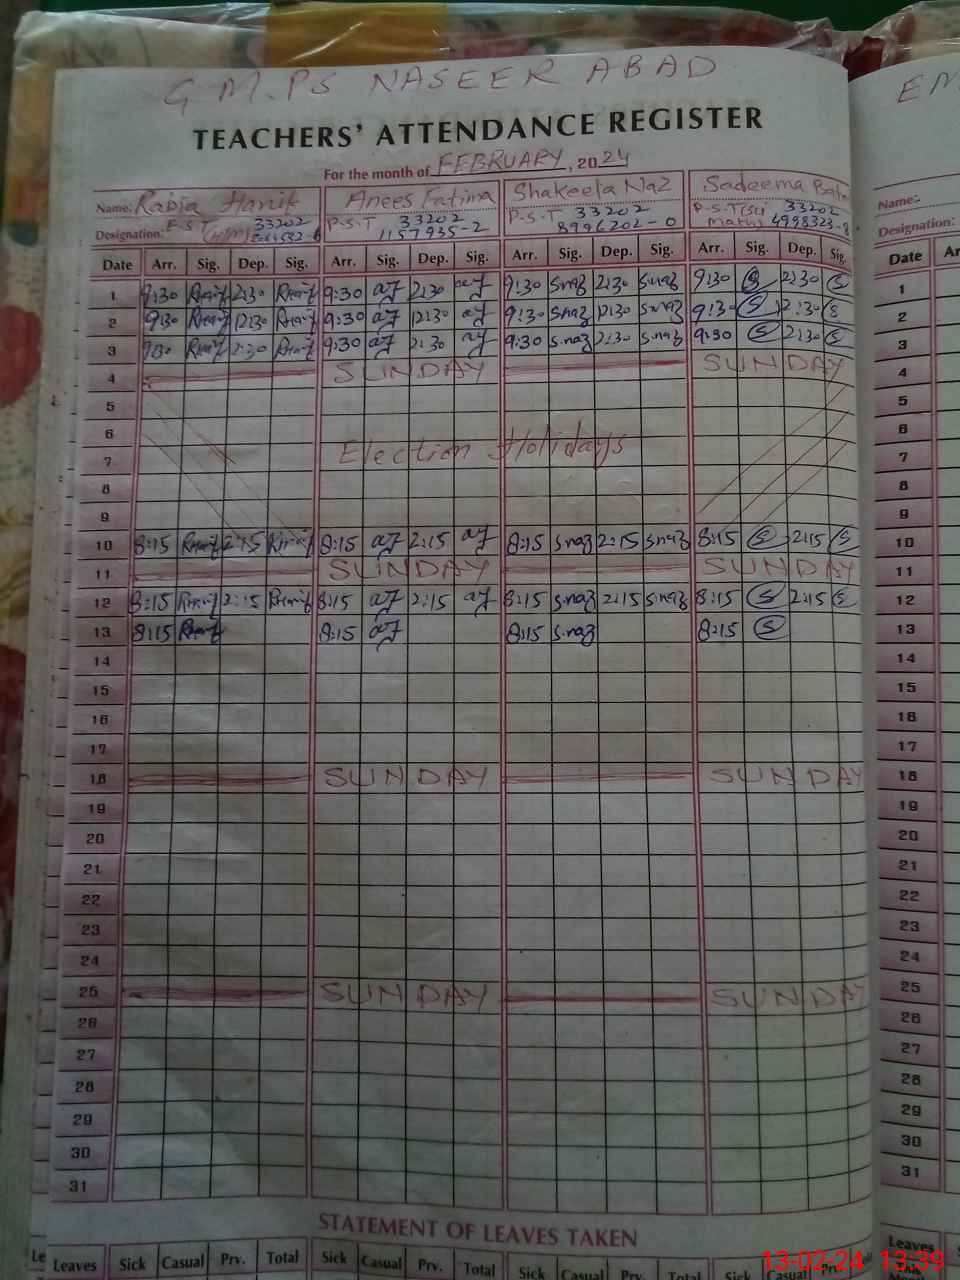 G M.PS NASEER ABAD
EM
TEACHERS' ATTENDANCE REGISTER
For the month of FEBRUARY, 2024
Name: Rabia Hanif Anees Fatima Shakeela Naz Sadeema
Designation: P-S-T (H/M) 33202 P-S-T 33202 1157935-2 P-S-T 33202 8996202-0 P-S-T(Sci maths) 33202 4998323-8
Name:-
Designation:
Date Arr. Sig. Dep. Sig. Arr. Sig. Dep. Sig. Arr. Sig. Dep. Sig. Arr. Sig. Dep. Sig. Date Ar
1 9:30 Rhanif 2:30 Rhanif 9:30 af 2:30 af 9:30 s.naz 2:30 s.naz 9:30 S 2:30 S 1
2 9:30 Rhanif 12:30 Rhanif 9:30 af 12:30 af 9:30 s.naz 12:30 s.naz 9:30 S 12:30 S 2
3 9:30 Rhanif 2:30 Rhanif 9:30 af 2:30 af 9:30 s.naz 2:30 s.naz 9:30 S 2:30 S 3
4 SUNDAY SUNDAY 4
5 5
6 Election Holidays 6
7 7
8 8
9 9
10 8:15 Rhanif 2:15 Rhanif 8:15 af 2:15 af 8:15 s.naz 2:15 s.naz 8:15 S 2:15 S 10
11 SUNDAY SUNDAY 11
12 8:15 Rhanif 2:15 Rhanif 8:15 af 2:15 af 8:15 s.naz 2:15 s.naz 8:15 S 2:15 S 12
13 8:15 Rhanif 8:15 af 8:15 s.naz 8:15 S 13
14 14
15 15
16 16
17 17
18 SUNDAY SUNDAY 18
19 19
20 20
21 21
22 22
23 23
24 24
25 SUNDAY SUNDAY 25
26 26
27 27
28 28
29 29
30 30
31 31
STATEMENT OF LEAVES TAKEN
Le Leaves Sick Casual Prv. Total Sick Casual Prv. Total Sick Casual Prv. Total Sick Casual Prv. Leaves
13-02-24 13:39